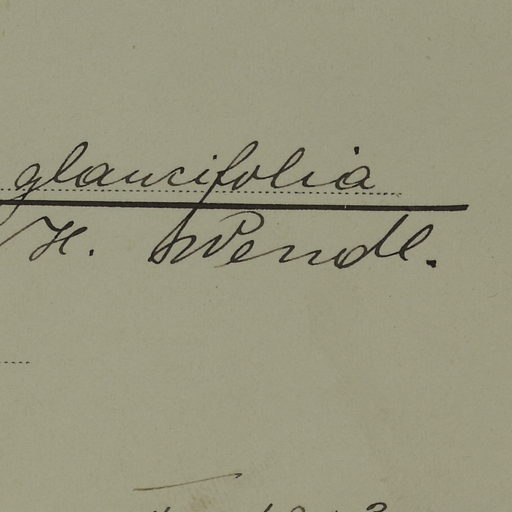 glaucifolia
H. Wendl.